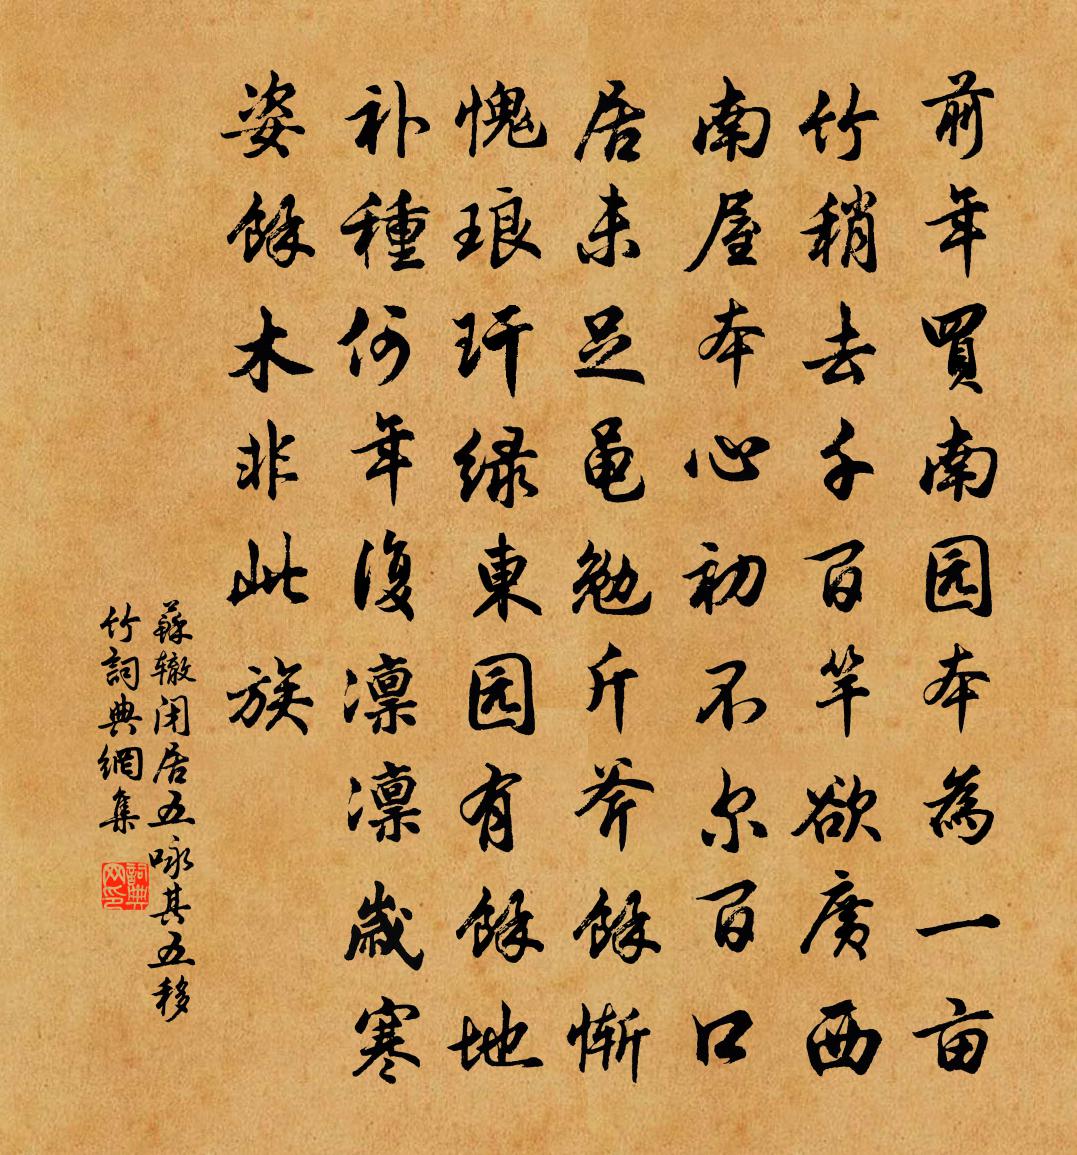 前年買南园本為一亩
竹稍去千百竿欲广西
南屋本心初不尔百口
居未足黾勉斤斧餘惭
愧琅玕绿東园有餘地
补種何年復凛凛歲寒
姿餘木非此族
蘇辙闭居五咏其五移
竹詞典網集
詞典网印